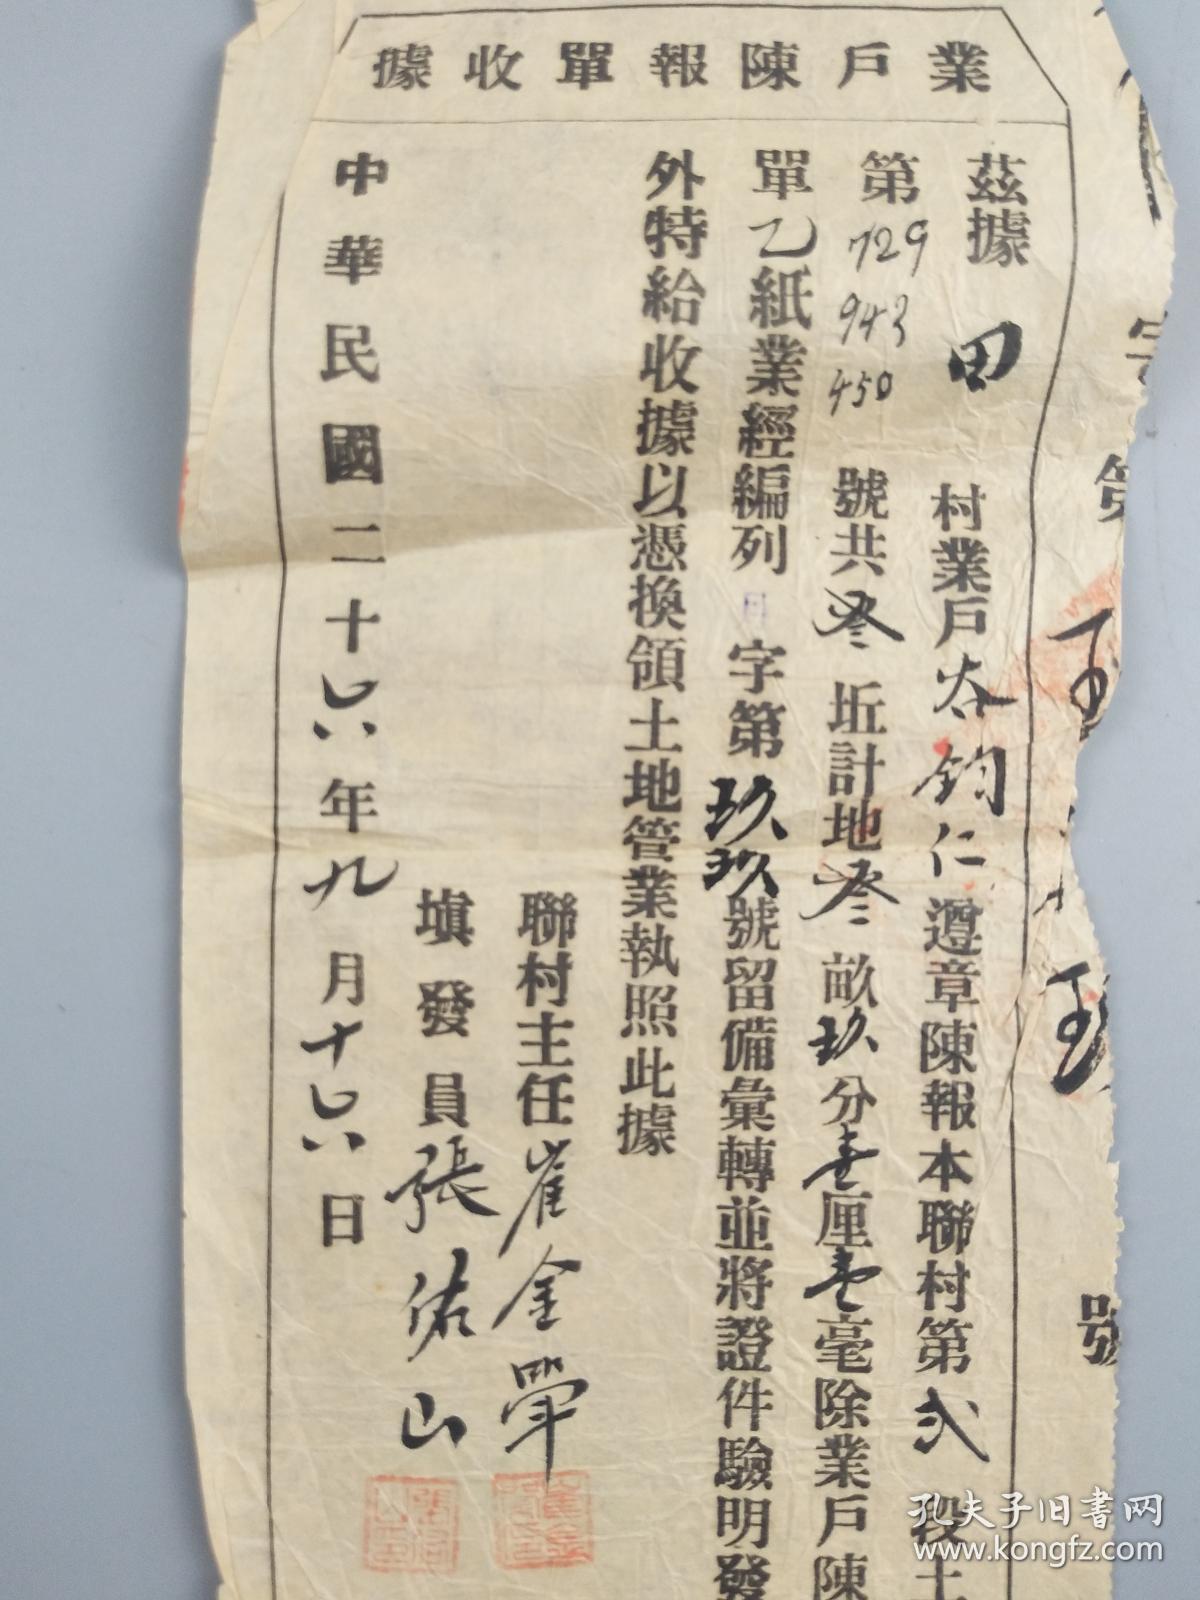 業戶陳報單收據
茲據 田 村業戶 鈞仁遵章陳報本聯村第弍段土
第729 943 450 號共叁坵計地叁畝玖分壹厘壹毫除業戶陳
單乙紙業經編列 字第玖玖號留備彙轉並將證件驗明發
外特給收據以憑換領土地管業執照此據
聯村主任崔金
填發員張佑山
中華民國二十六年九月十六日
號
孔夫子旧书网
www.kongfz.com